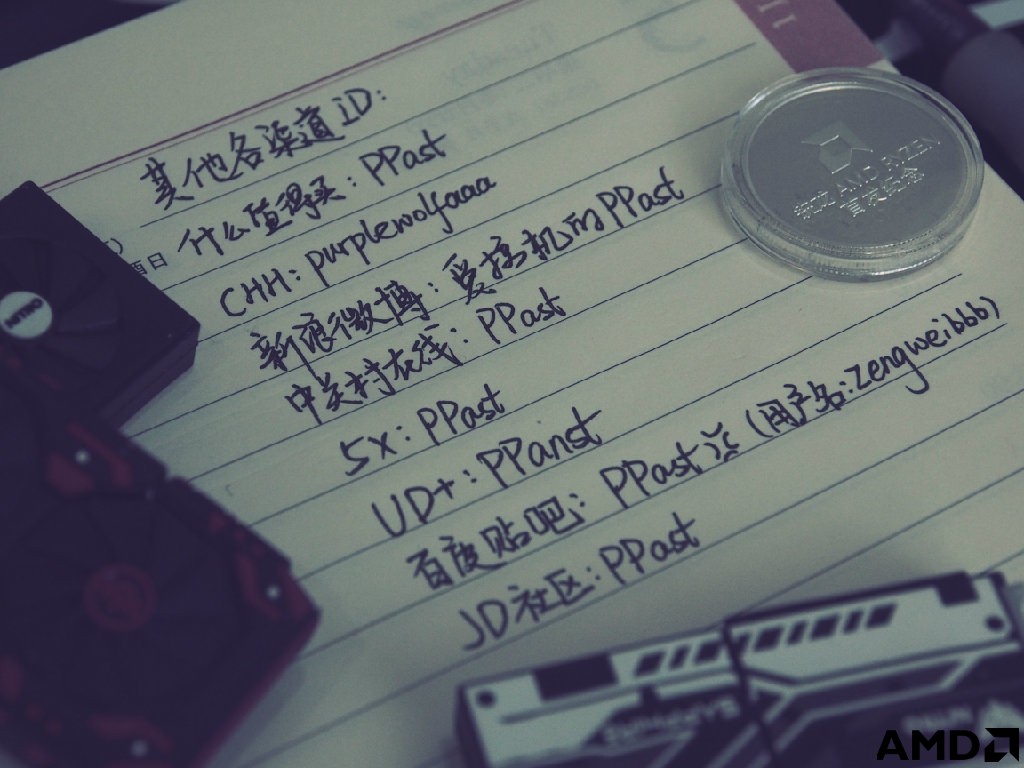 其他各渠道iD:
什么值得买: PPast
CHH: purplewolfaaa
新浪微博: 爱搞机的PPast
中关村在线: PPast
5X: PPast
UD+: PPanst
百度贴吧: PPast
(用户名:zengweibbb)
JD社区: PPast
AMD RYZEN
首发纪念
11
AMD